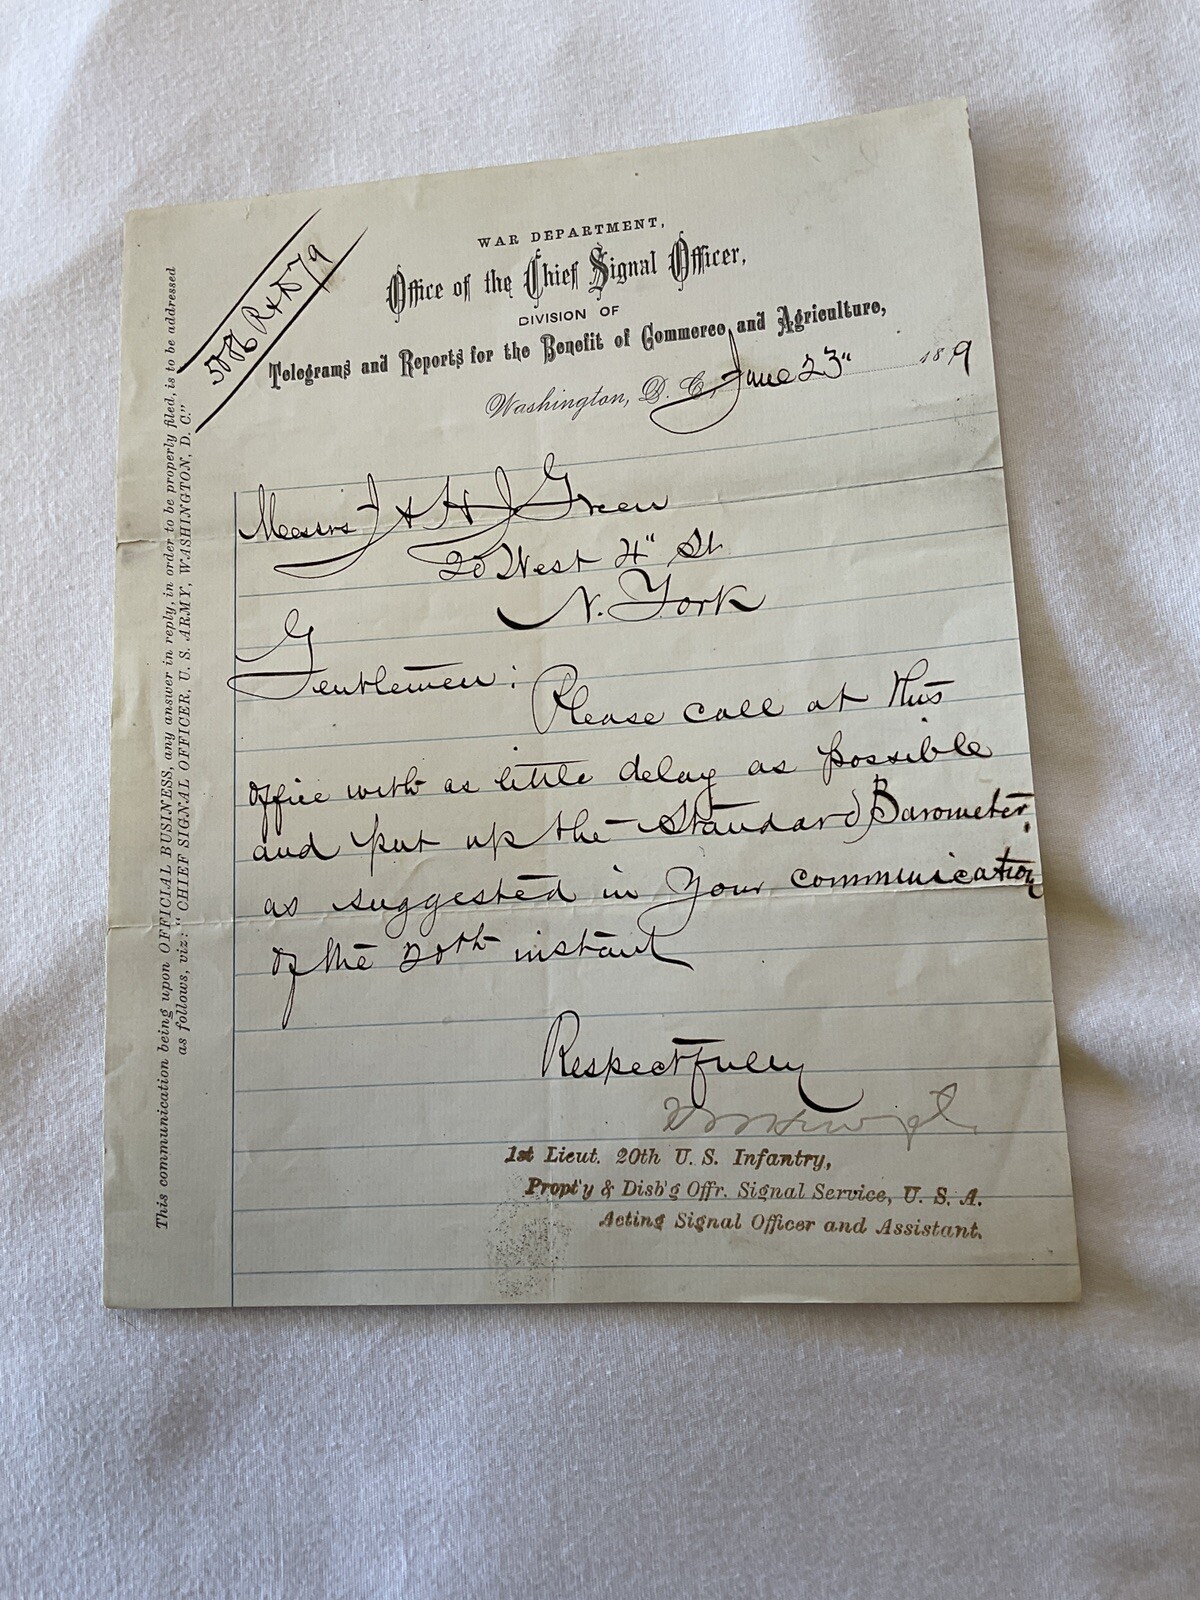 5086 R & D 79
WAR DEPARTMENT,
Office of the Chief Signal Officer,
DIVISION OF
Telegrams and Reports for the Benefit of Commerce and Agriculture,
Washington, D. C., June 23" 1879
Messrs J & H J Green
20 West 4" St
N. York
Gentlemen:
Please call at this
office with as little delay as possible
and put up the Standard Barometer,
as suggested in your communication
of the 20th instant
Respectfully
1st Lieut. 20th U. S. Infantry,
Propt'y & Disb'g Offr. Signal Service, U. S. A.
Acting Signal Officer and Assistant.
This communication being upon OFFICIAL BUSINESS, any answer in reply, in order to be properly filed, is to be addressed
as follows, viz: "CHIEF SIGNAL OFFICER, U. S. ARMY, WASHINGTON, D. C."